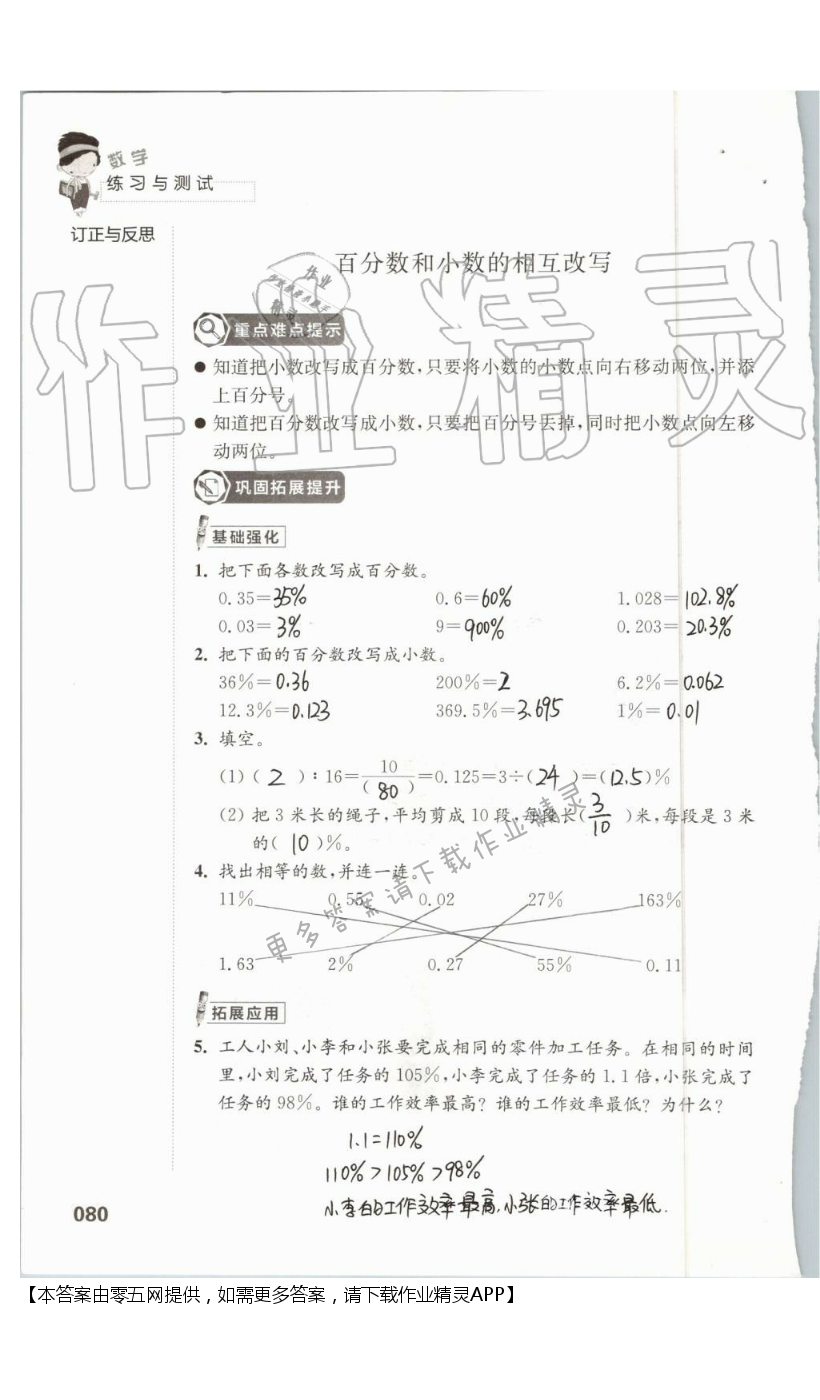 数学
练习与测试
订正与反思
百分数和小数的相互改写
重点难点提示
● 知道把小数改写成百分数,只要将小数的小数点向右移动两位,并添
上百分号。
● 知道把百分数改写成小数,只要把百分号去掉,同时把小数点向左移
动两位。
巩固拓展提升
基础强化
1. 把下面各数改写成百分数。
0.35=35% 0.6=60% 1.028=102.8%
0.03=3% 9=900% 0.203=20.3%
2. 把下面的百分数改写成小数。
36%=0.36 200%=2 6.2%=0.062
12.3%=0.123 369.5%=3.695 1%=0.01
3. 填空。
(1) ( 2 ):16=10/(80)=0.125=3÷(24)=(12.5)%
(2) 把 3 米长的绳子,平均剪成 10 段,每段长(3/10)米,每段是 3 米
的(10)%。
4. 找出相等的数,并连一连。
11% 0.55 0.02 27% 163%
1.63 2% 0.27 55% 0.11
拓展应用
5. 工人小刘、小李和小张要完成相同的零件加工任务。在相同的时间
里,小刘完成了任务的 105%,小李完成了任务的 1.1 倍,小张完成了
任务的 98%。谁的工作效率最高?谁的工作效率最低?为什么?
1.1=110%
110%>105%>98%
小李的工作效率最高,小张的工作效率最低.
080
作业精灵
更多答案请下载作业精灵
【本答案由零五网提供，如需更多答案，请下载作业精灵APP】